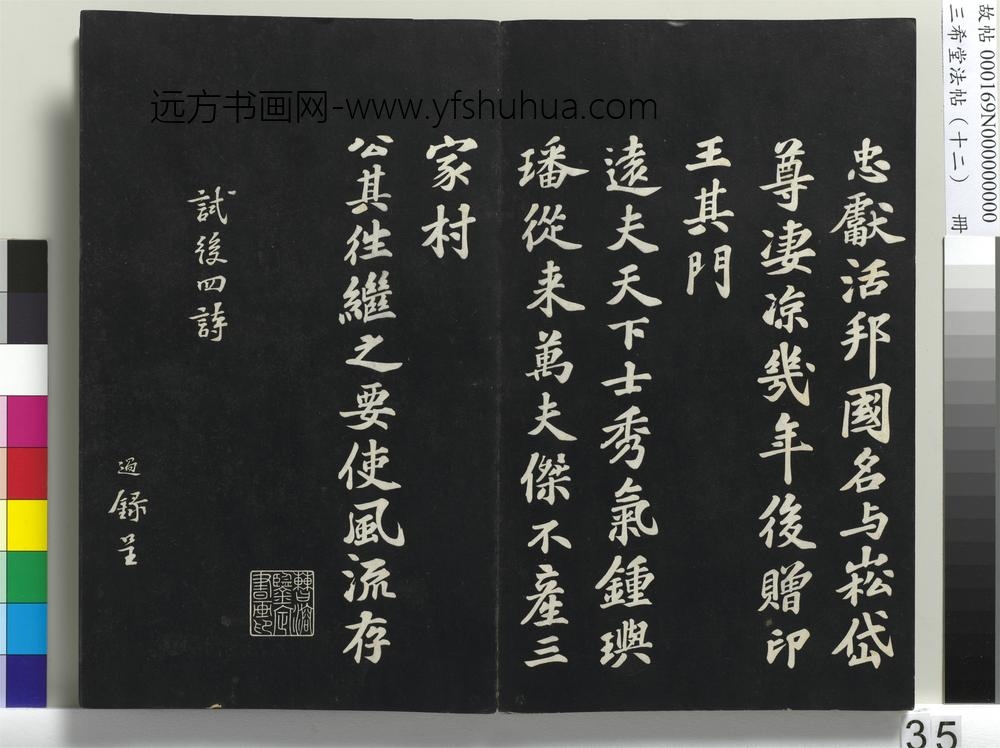 忠獻活邦國名与崧岱
尊凄凉幾年後贈印
王其門
遠夫天下士秀氣鍾璵
璠從来萬夫傑不產三
家村
公其往繼之要使風流存
試後四詩
過録呈
曹溶
鑒定
書画印
远方书画网-www.yfshuhua.com
故帖 000169N000000000
三希堂法帖（十二） 册
35